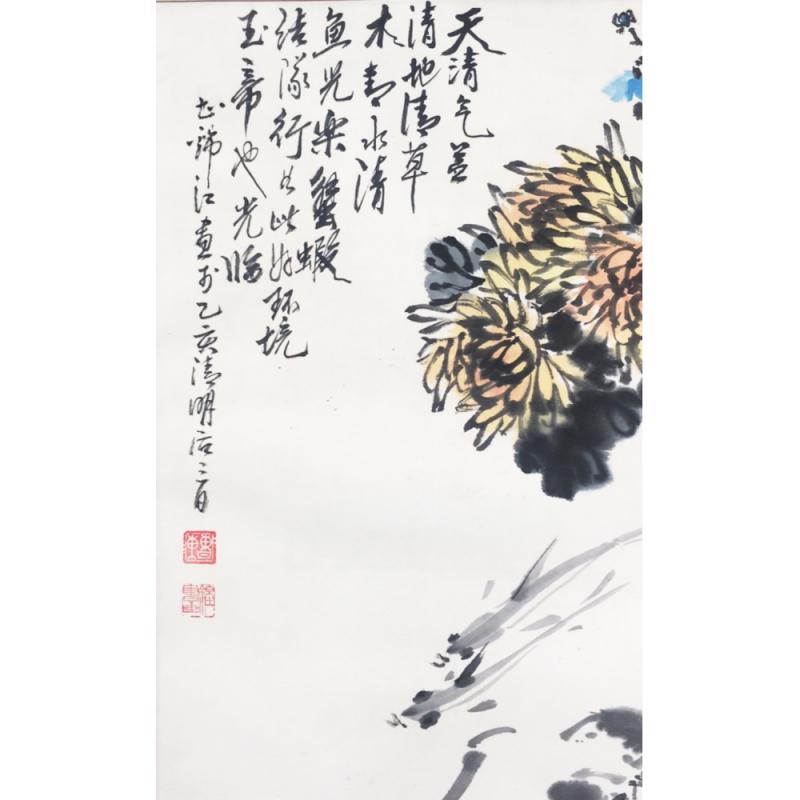 天清气益
清地清草
木青水清
鱼児楽蟹蝦
结隊行如此好环境
玉帝也光临
江畫于乙亥清明后二日